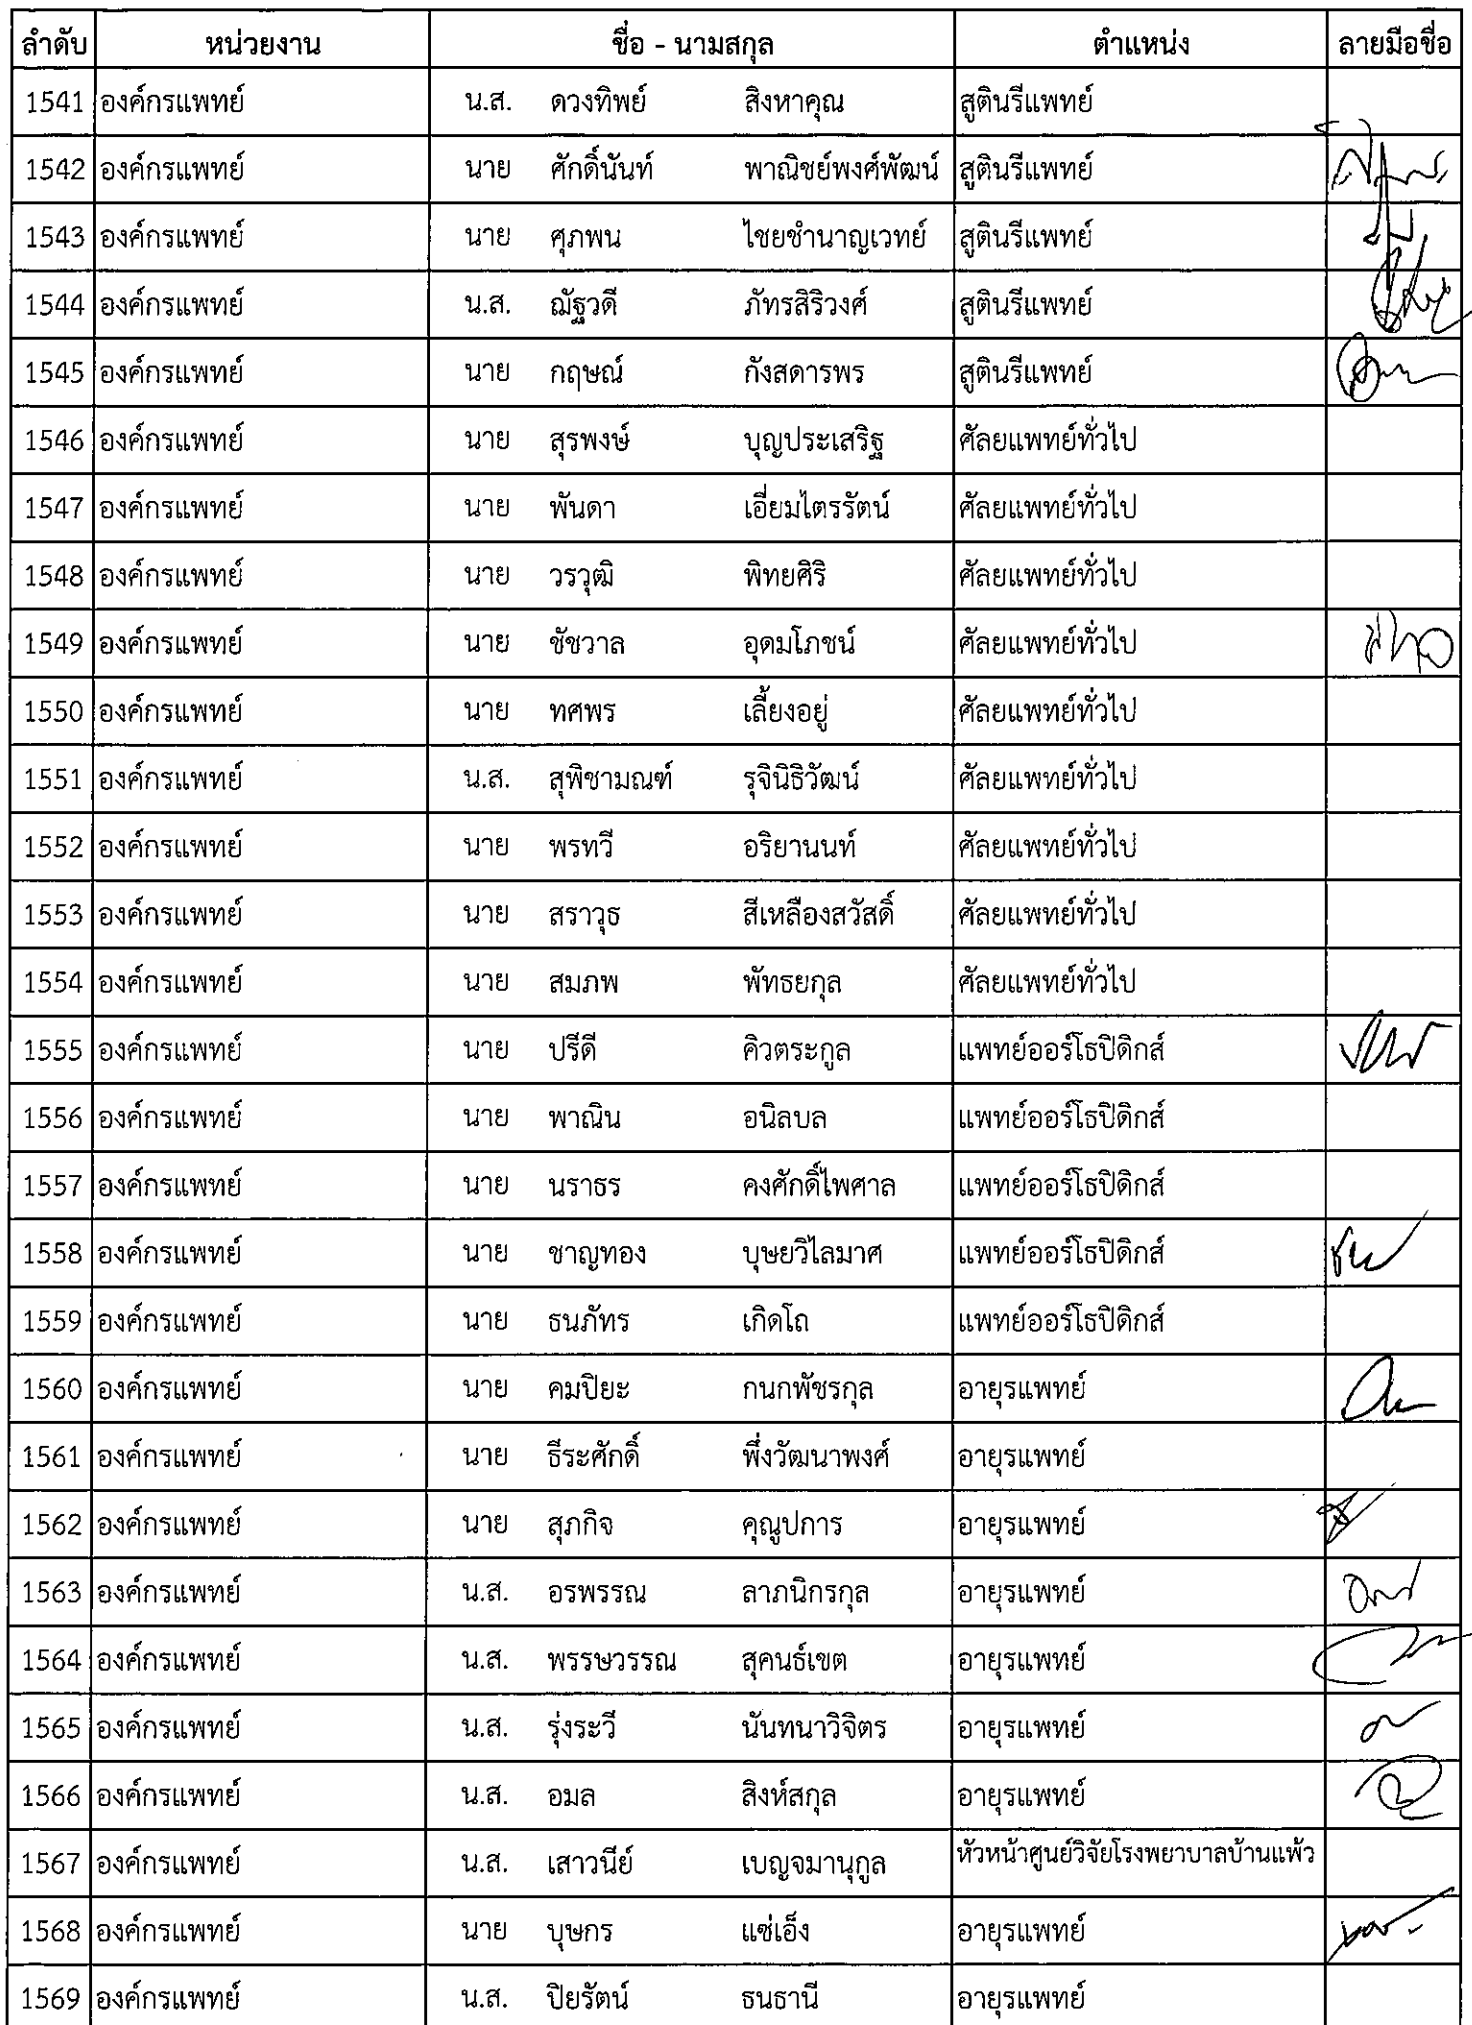 ลำดับ หน่วยงาน ชื่อ - นามสกุล ตำแหน่ง ลายมือชื่อ
1541 องค์กรแพทย์ น.ส. ดวงทิพย์ สิงหาคุณ สูตินรีแพทย์
1542 องค์กรแพทย์ นาย ศักดิ์นันท์ พาณิชย์พงศ์พัฒน์ สูตินรีแพทย์
1543 องค์กรแพทย์ นาย ศุภพน ไชยชำนาญเวทย์ สูตินรีแพทย์
1544 องค์กรแพทย์ น.ส. ณัฐวดี ภัทรสิริวงศ์ สูตินรีแพทย์
1545 องค์กรแพทย์ นาย กฤษณ์ กังสดารพร สูตินรีแพทย์
1546 องค์กรแพทย์ นาย สุรพงษ์ บุญประเสริฐ ศัลยแพทย์ทั่วไป
1547 องค์กรแพทย์ นาย พันดา เอี่ยมไตรรัตน์ ศัลยแพทย์ทั่วไป
1548 องค์กรแพทย์ นาย วรวุฒิ พิทยศิริ ศัลยแพทย์ทั่วไป
1549 องค์กรแพทย์ นาย ชัชวาล อุดมโภชน์ ศัลยแพทย์ทั่วไป
1550 องค์กรแพทย์ นาย ทศพร เลี้ยงอยู่ ศัลยแพทย์ทั่วไป
1551 องค์กรแพทย์ น.ส. สุพิชามณฑ์ รุจินิธิวัฒน์ ศัลยแพทย์ทั่วไป
1552 องค์กรแพทย์ นาย พรทวี อริยานนท์ ศัลยแพทย์ทั่วไป
1553 องค์กรแพทย์ นาย สราวุธ สีเหลืองสวัสดิ์ ศัลยแพทย์ทั่วไป
1554 องค์กรแพทย์ นาย สมภพ พัทธยกุล ศัลยแพทย์ทั่วไป
1555 องค์กรแพทย์ นาย ปรีดี คิวตระกูล แพทย์ออร์โธปิดิกส์
1556 องค์กรแพทย์ นาย พาณิน อนิลบล แพทย์ออร์โธปิดิกส์
1557 องค์กรแพทย์ นาย นราธร คงศักดิ์ไพศาล แพทย์ออร์โธปิดิกส์
1558 องค์กรแพทย์ นาย ชาญทอง บุษยวิไลมาศ แพทย์ออร์โธปิดิกส์
1559 องค์กรแพทย์ นาย ธนภัทร เกิดโถ แพทย์ออร์โธปิดิกส์
1560 องค์กรแพทย์ นาย คมปิยะ กนกพัชรกุล อายุรแพทย์
1561 องค์กรแพทย์ นาย ธีระศักดิ์ พึ่งวัฒนาพงศ์ อายุรแพทย์
1562 องค์กรแพทย์ นาย สุภกิจ คุณูปการ อายุรแพทย์
1563 องค์กรแพทย์ น.ส. อรพรรณ ลาภนิกรกุล อายุรแพทย์
1564 องค์กรแพทย์ น.ส. พรรษวรรณ สุคนธ์เขต อายุรแพทย์
1565 องค์กรแพทย์ น.ส. รุ่งระวี นันทนาวิจิตร อายุรแพทย์
1566 องค์กรแพทย์ น.ส. อมล สิงห์สกุล อายุรแพทย์
1567 องค์กรแพทย์ น.ส. เสาวนีย์ เบญจมานุกูล หัวหน้าศูนย์วิจัยโรงพยาบาลบ้านแพ้ว
1568 องค์กรแพทย์ นาย บุษกร แซ่เอ็ง อายุรแพทย์
1569 องค์กรแพทย์ น.ส. ปิยรัตน์ ธนธานี อายุรแพทย์